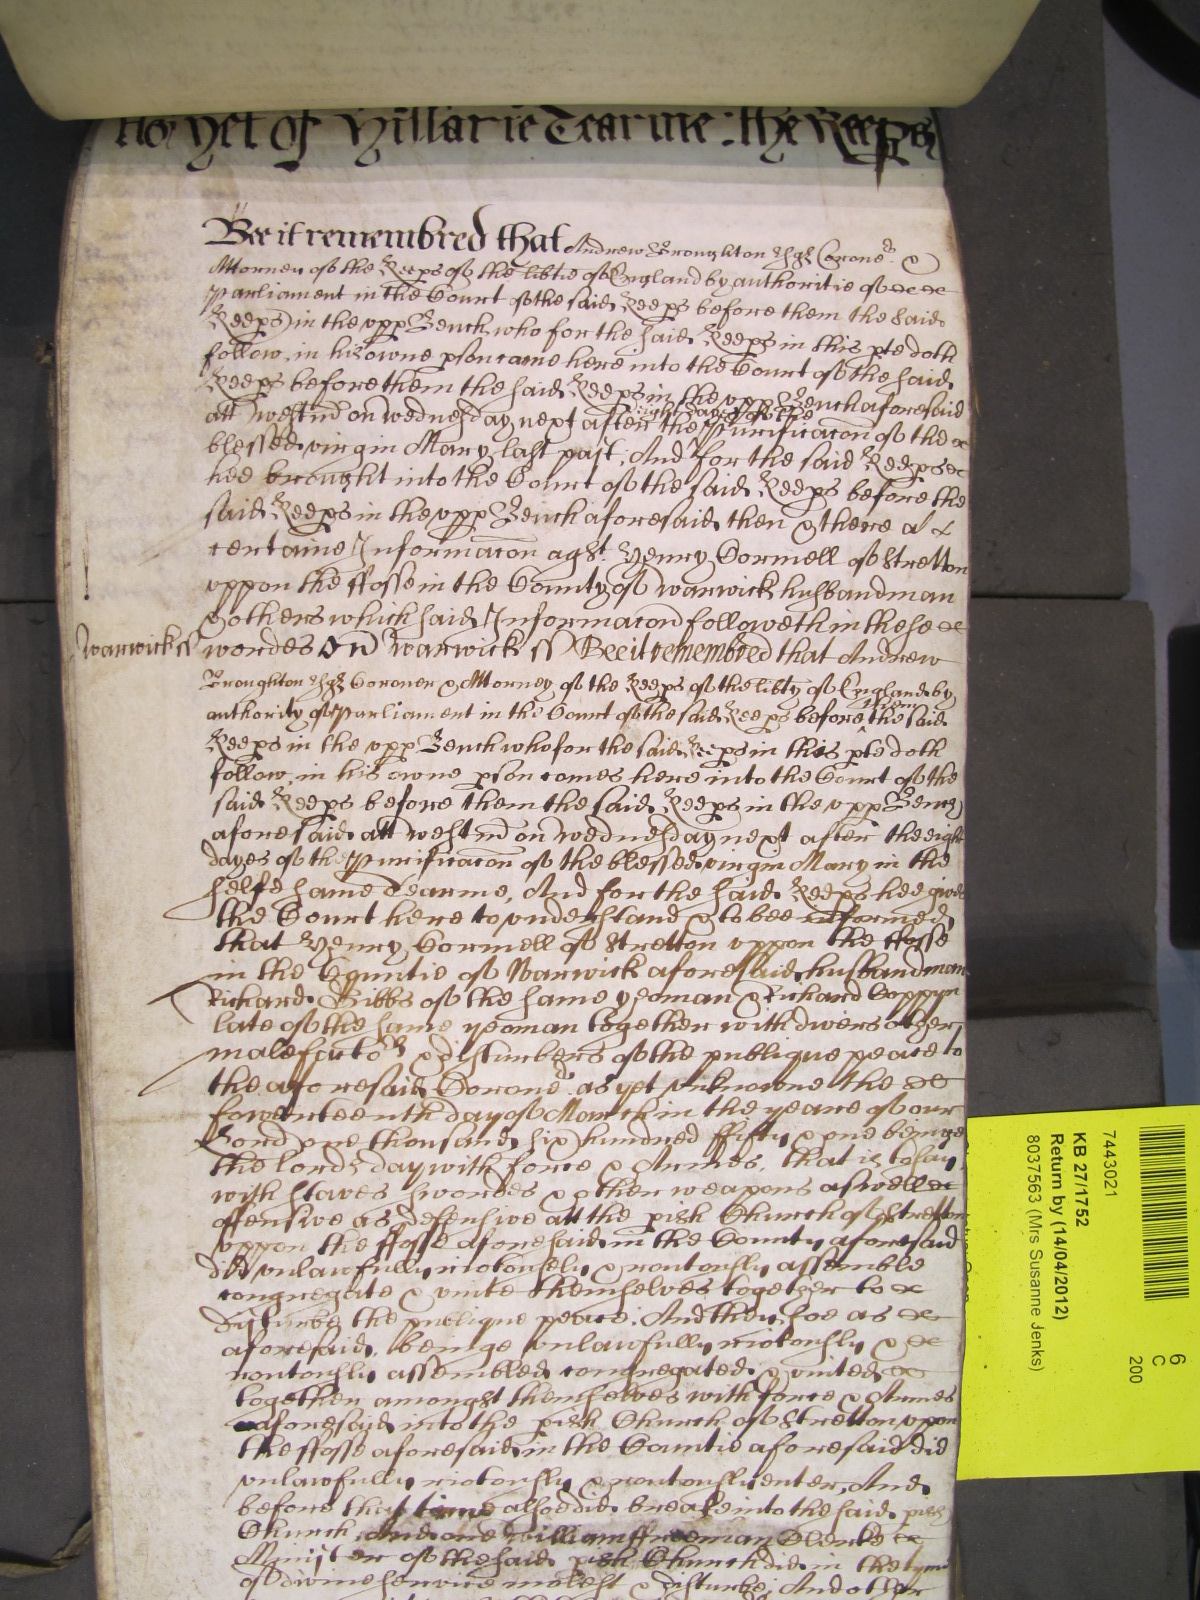 As yet of Hillarie Tearme : the Keeps
Bee it remembred that Andrew Broughton Esq Corone &
Attorney of the Keeps of the libtie of England by authoritie of
Parliament in the Court of the said Keeps before them the said
Keeps in the upp Bench who for the said Keeps in this pte doth
follow in his owne pson came here into the Court of the said
Keeps before them the said Keeps in the upp Bench aforesaid
att Westm on wednesday next after the eight dayes of the Purificacon of the
blessed virgin Mary last past, And for the said Keeps
hee brought into the Court of the said Keeps before the
said Keeps in the upp Bench aforesaid then & there a
certaine Informacon agst Henry Cormell of Stretton
uppon the ffosse in the County of warwick husbandman
& others which said Informacon followeth in these
Warwick ss wordes ss Warwick ss Bee it remembred that Andrew
Broughton Esq Coroner & Attorney of the Keeps of the libty of England by
authority of Parliament in the Court of the said Keeps before them the said
Keeps in the upp Bench who for the said Keeps in this pte doth
follow in his owne pson comes here into the Court of the
said Keeps before them the said Keeps in the upp Bench
aforesaid att westm on wednesday next after the eight
dayes of the Purificacon of the blessed virgin Mary in the
selfe same Tearme, And for the said Keeps hee gives
the Court here to understand & to bee informed
that Henry Cormell of Stretton uppon the ffosse
in the Countie of Warwick aforesaid husbandman
Richard Gibbs of the same yeoman & Richard Coppyn
late of the same yeoman together with divers other
malefactors & disturbers of the publique peace to
the aforesaid Corone as yet unknowne the
fowerteenth day of March in the yeare of our
Lord one thousand six hundred ffifty & one beinge
the lords day with force & Armes, that is to say
with staves swordes & other weapons aswell
offensive as defensive att the pish Church of Stretton
uppon the ffosse aforesaid in the County aforesaid
did unlawfully riotously & routously assemble
congregate & unite themselves together to
disturbe the publique peace, And they soe as
aforesaid beinge unlawfully riotously &
routously assembled congregated & united
together amongst themselves with force & Armes
aforesaid into the pish Church of Stretton uppon
the ffosse aforesaid in the Countie aforesaid did
unlawfully riotously & routously enter, And
before that time alsoe did breake into the said pish
Church And one William ffreeman Clerke
Minister of the said pish Church did in the tyme
of divine service molest & disturbe, And other
7443021
KB 27/1752
Return by (14/04/2012)
8037563 (Mrs Susanne Jenks)
6
C
200